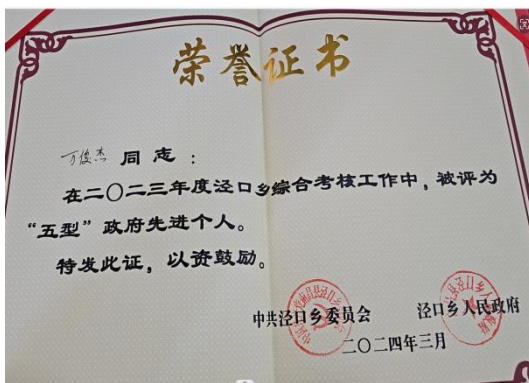 荣誉证书
万俊杰 同志：
在二〇二三年度泾口乡综合考核工作中，被评为
“五型”政府先进个人。
特发此证，以资鼓励。
中共泾口乡委员会 泾口乡人民政府
二〇二四年三月